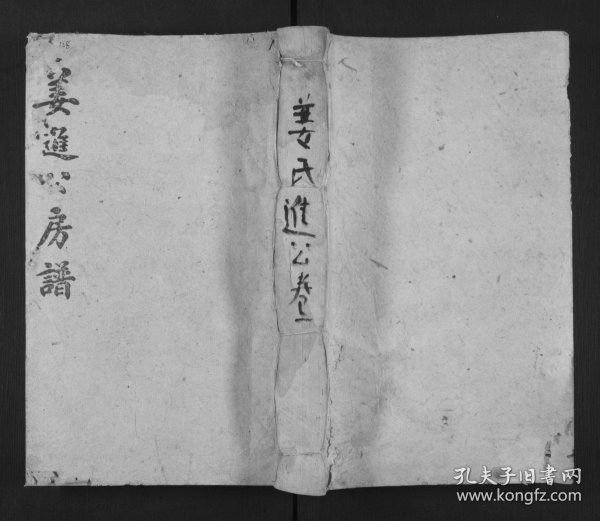 姜進公房譜
姜氏進公卷一
孔夫子旧書网
www.kongfz.com